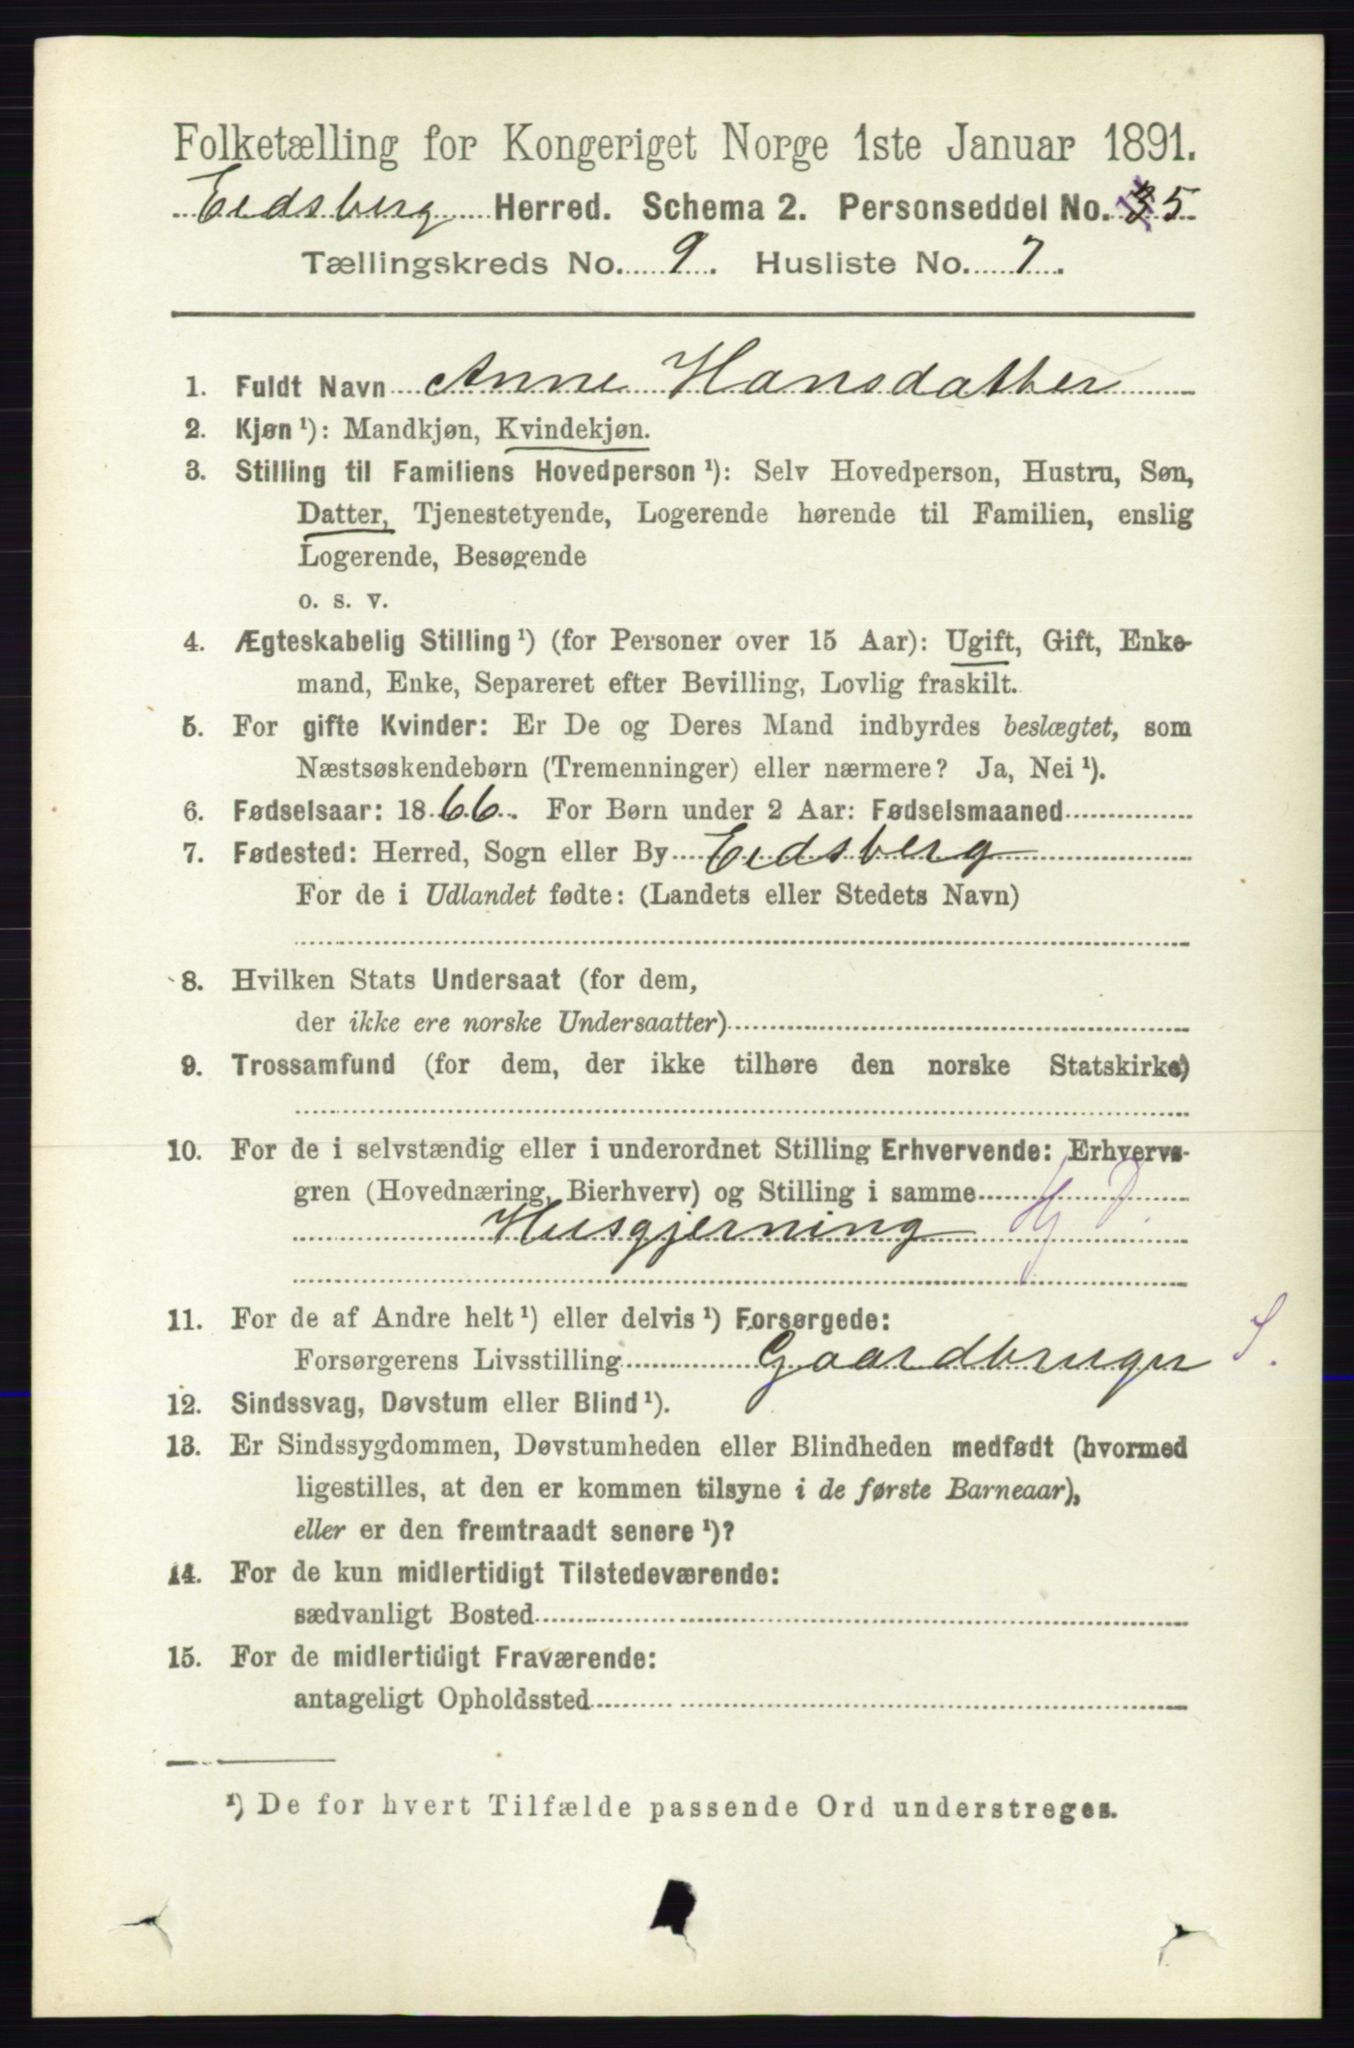 Folketælling for Kongeriget Norge 1ste Januar 1891.
Eidsberg Herred. Schema 2. Personseddel No. 5
Tællingskreds No. 9. Husliste No. 7.
1. Fuldt Navn Anne Hansdatter
2. Kjøn ¹): Mandkjøn, Kvindekjøn.
3. Stilling til Familiens Hovedperson ¹): Selv Hovedperson, Hustru, Søn,
Datter, Tjenestetyende, Logerende hørende til Familien, enslig
Logerende, Besøgende
o. s. v.
4. Ægteskabelig Stilling ¹) (for Personer over 15 Aar): Ugift, Gift, Enke-
mand, Enke, Separeret efter Bevilling, Lovlig fraskilt.
5. For gifte Kvinder: Er De og Deres Mand indbyrdes beslægtet, som
Næstsøskendebørn (Tremenninger) eller nærmere? Ja, Nei ¹).
6. Fødselsaar: 1866. For Børn under 2 Aar: Fødselsmaaned
7. Fødested: Herred, Sogn eller By Eidsberg
For de i Udlandet fødte: (Landets eller Stedets Navn)
8. Hvilken Stats Undersaat (for dem,
der ikke ere norske Undersaatter)
9. Trossamfund (for dem, der ikke tilhøre den norske Statskirke)
10. For de i selvstændig eller i underordnet Stilling Erhvervende: Erhvervs-
gren (Hovednæring, Bierhverv) og Stilling i samme
Husgjerning Hj D.
11. For de af Andre helt ¹) eller delvis ¹) Forsørgede:
Forsørgerens Livsstilling Gaardbruger S.
12. Sindssvag, Døvstum eller Blind ¹).
13. Er Sindssygdommen, Døvstumheden eller Blindheden medfødt (hvormed
ligestilles, at den er kommen tilsyne i de første Barneaar),
eller er den fremtraadt senere ¹)?
14. For de kun midlertidigt Tilstedeværende:
sædvanligt Bosted
15. For de midlertidigt Fraværende:
antageligt Opholdssted
¹) De for hvert Tilfælde passende Ord understreges.